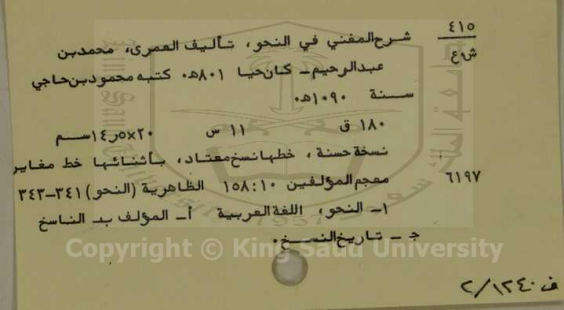 ٤١٥ شرح المغني في النحو، تأليف العمرى، محمد بن
ش ع عبد الرحيم - كان حيا ٨٠١هـ. كتبه محمود بن حاجي
سنة ١٠٩٠هـ.
١٨٠ ق ١١ س ٢٠×١٤٫٥ سم
نسخة حسنة، خطها نسخ معتاد، بأثنائها خط مغاير
٦١٩٧ معجم المؤلفين ١٠: ١٥٨ الظاهرية (النحو) ٣٤١-٣٤٣
١- النحو، اللغة العربية أ- المؤلف ب- الناسخ
ج- تاريخ النسخ.
Copyright © King Saud University
ف ١٢٤٠/٢